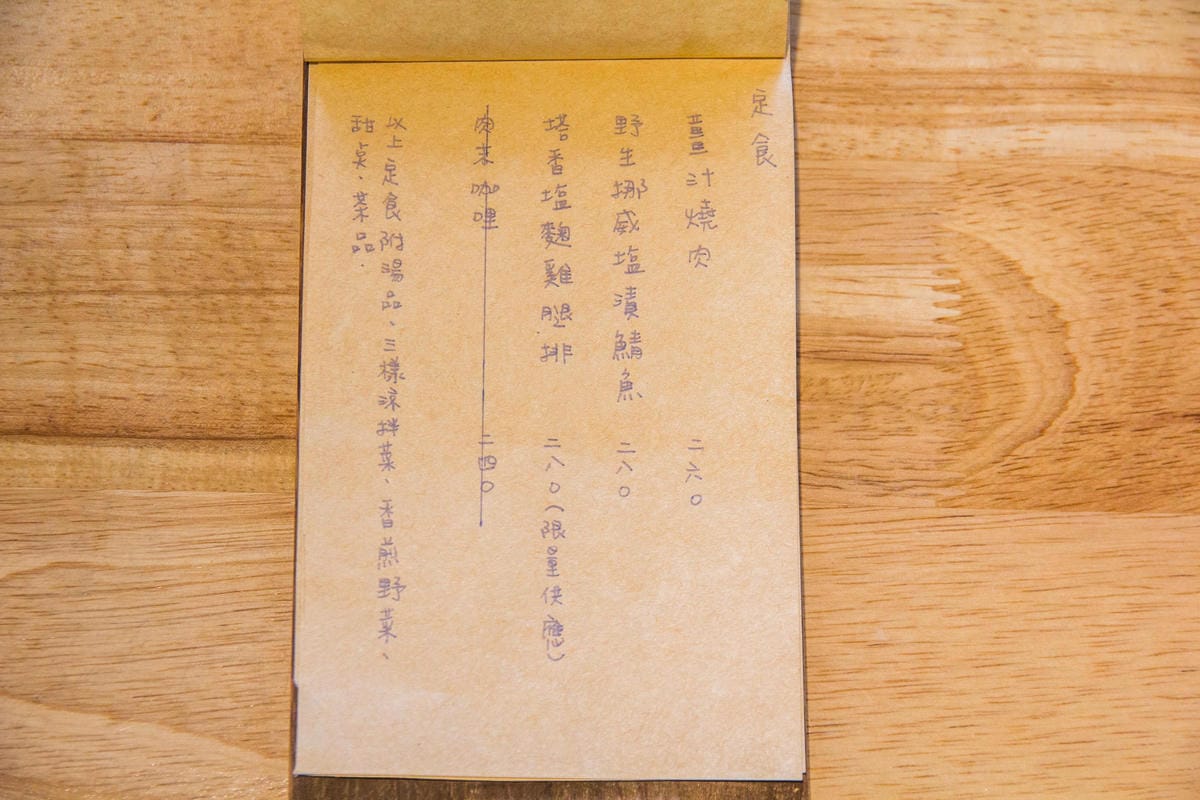 定食
薑汁燒肉 二六〇
野生挪威塩漬鯖魚 二八〇
塔香塩麴雞腿排 二八〇(限量供應)
肉末咖哩 二四〇
以上定食附湯品、三樣涼拌菜、香煎野菜、
甜點、茶品.